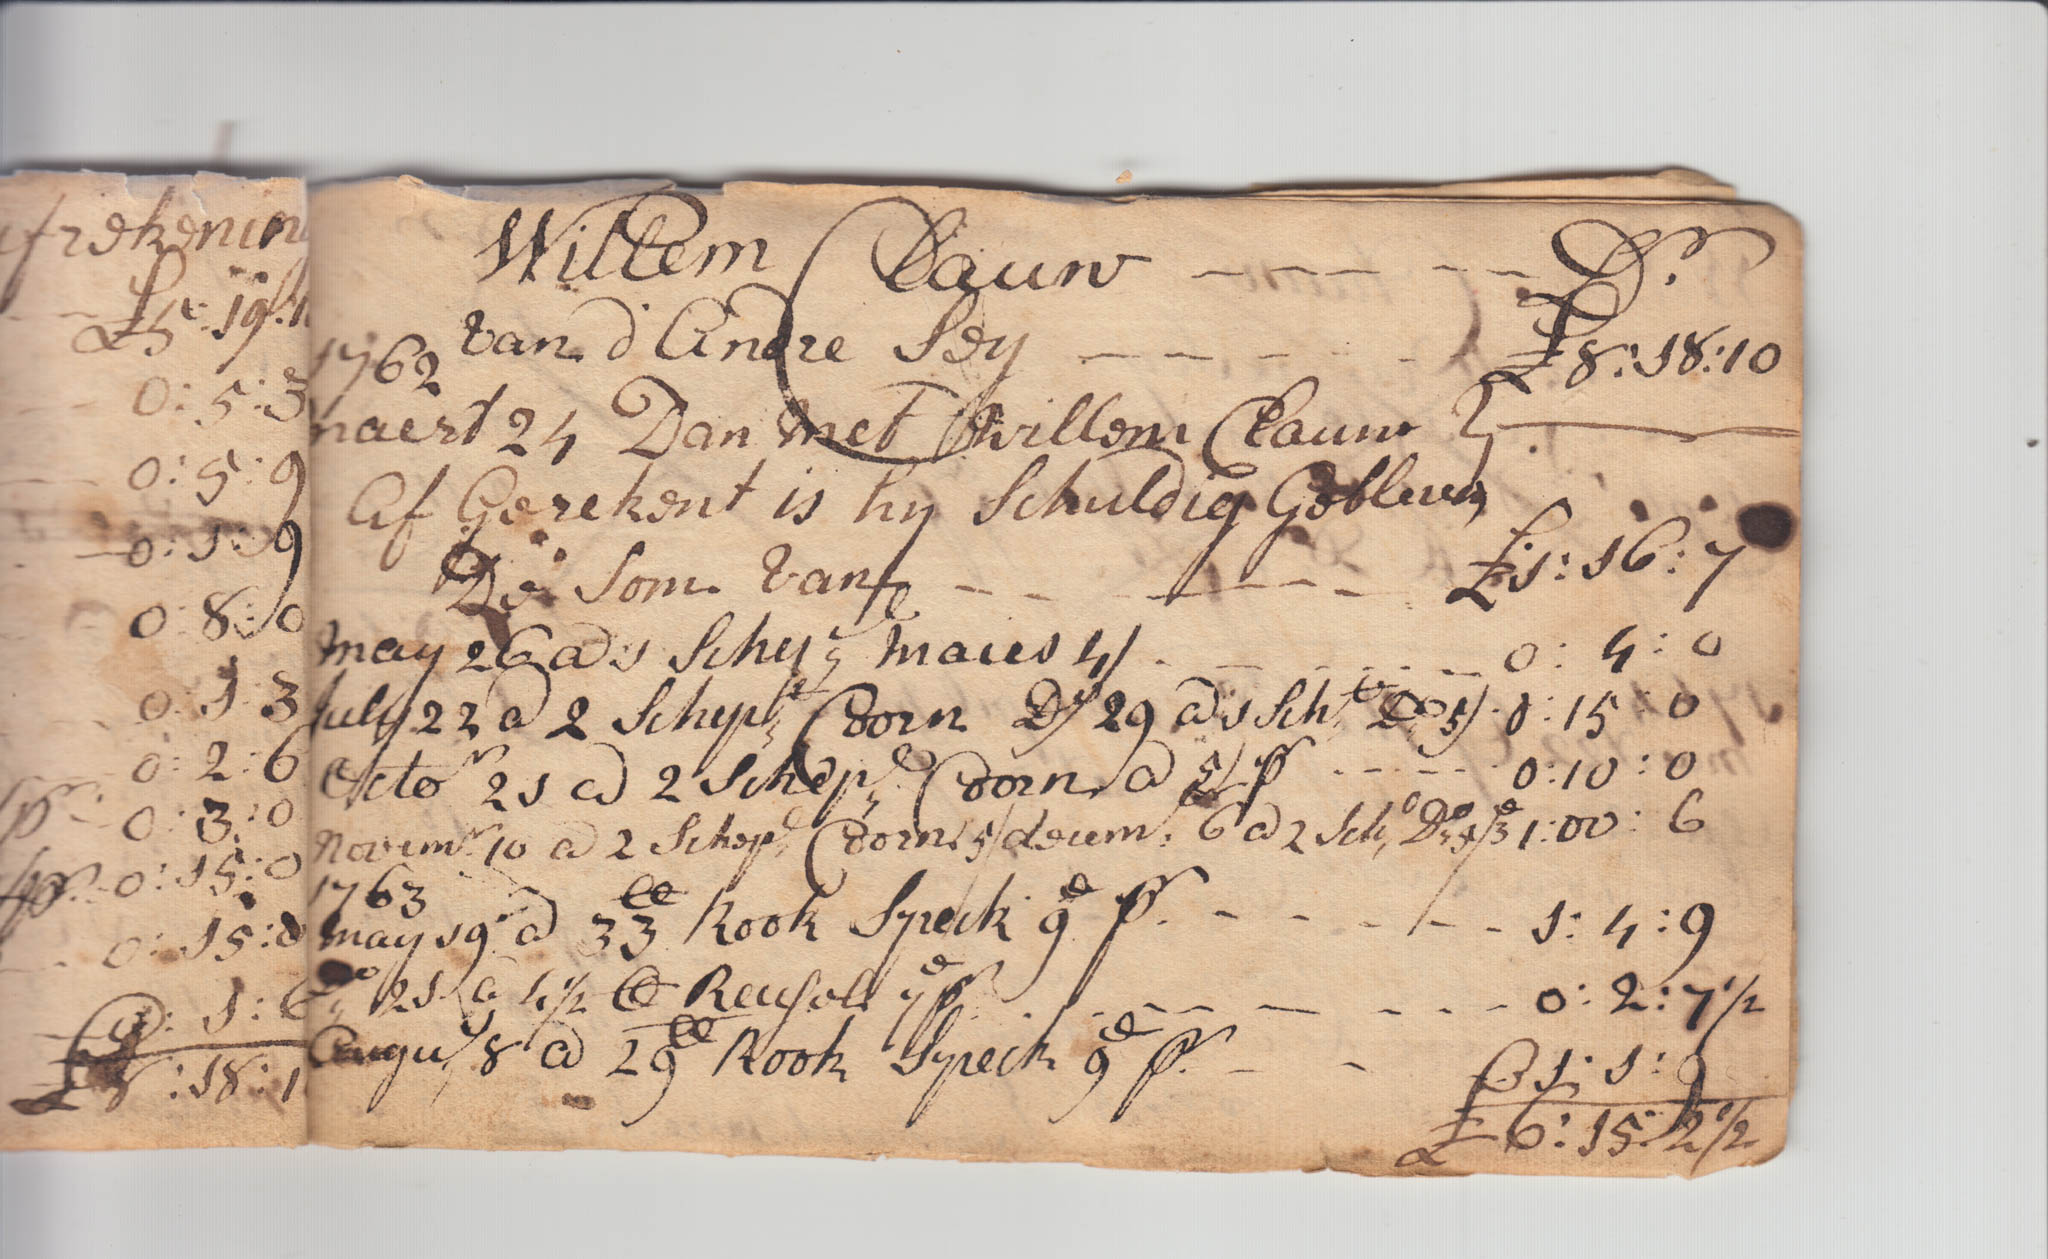 afrekening
£5:19:1
0:5:3
0:5:9
0:1:9
0:8:0
0:1:3
0:2:6
0:3:0
0:15:0
0:15:0
1:6
£8:18:1
Willem Clauw Dr.
van d'Andre Sey £8:18:10
1762
maert 24 Dan met Willem Clauw
Af Gerekent is hy Schuldig Gebleven
De Som van £1:16:7
may 26 @ 1 Schep maies 4/ 0:4:0
July 22 @ 2 Schepl Coorn Dy 29 @ 1 Sch Do 5/ 0:15:0
Octor 21 @ 2 Schepl Coorn @ 5/ p 0:10:0
Novemr 10 @ 2 Schepl Coorn 5/ decem. 6 @ 2 Sch Do 5/3 1:00:6
1763
may 19 @ 33 ll Rook Speck 9d p 1:4:9
Do 21 @ 4½ ll Reusel 7d p 0:2:7½
Augu 8 @ 29 ll Rook Speck 9d p 1:1:9
£6:15:2½